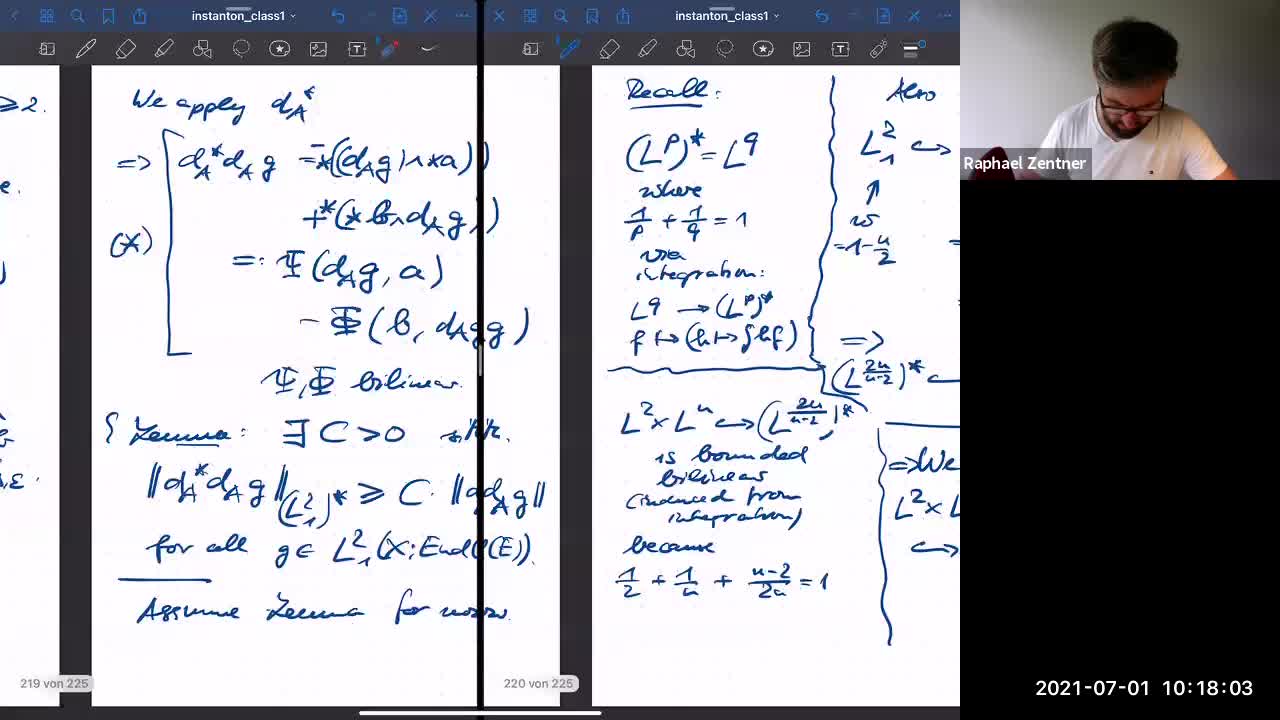 instanton_class1
instanton_class1
≥2.
e.
,ε.
We apply d_A^*
=> d_A^* d_A g = -*((d_A g) ∧ *a))
+*(*b ∧ d_A g)
(*)
=: Ψ(d_A g, a)
- Φ(b, d_A g)
Ψ, Φ bilinear.
Lemma: ∃ C > 0 s.th.
‖d_A^* d_A g‖_{(L^2_1)^*} ≥ C · ‖d_A g‖
for all g ∈ L^2_1(X; End(E)).
Assume Lemma for now.
219 von 225
Recall:
(L^p)^* = L^q
where
1/p + 1/q = 1
via
integration:
L^q → (L^p)^*
f ↦ (h ↦ ∫hf)
L^2 × L^n ↪ (L^{2n/(n-2)})^*
is bounded
bilinear
(induced from
integration)
because
1/2 + 1/n + (n-2)/2n = 1
220 von 225
Also
L^2_1 ↪
↑
w
= 1 - n/2
=>
(L^{2n/(n-2)})^* ↪
=> We
L^2 × L
↪
Raphael Zentner
2021-07-01 10:18:03